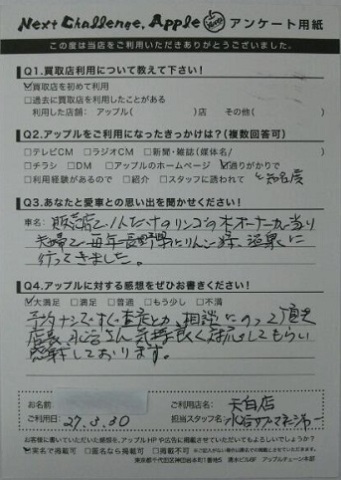 Next Challenge, Apple アンケート用紙
この度は当店をご利用いただきありがとうございました。
Q1.買取店利用について教えて下さい！
☑買取を初めて利用
□過去に買取を利用したことがある
利用した店舗： アップル( )店 その他( )
Q2.アップルをご利用になったきっかけは？(複数回答可)
□テレビCM □ラジオCM □新聞・雑誌(媒体名/ )
□チラシ □DM □アップルのホームページ ☑通りがかりで
□利用経験があるので □紹介 □スタッフに誘われて と知名度
Q3.あなたと愛車との思い出を聞かせください！
車名：
夫婦で毎年長野県にりんご 温泉に
行ってきました。
Q4.アップルに対する感想をぜひお書きください！
☑大満足 □満足 □普通 □もう少し □不満
予約ナシですぐ査定とか、相談にのって頂き
店長、水谷さん気持良く対応してもらい
感謝しております。
お名前
ご利用店名： 天白店
ご利用日： 27.3.30
担当スタッフ名： 水谷サブマネージャー
お客様に書いていただいた感想を、アップルHPや広告に掲載させていただいてもよろしいでしょうか？
☑実名で掲載可 □匿名なら掲載可 □掲載不可 ※になる場合がございます
東京都千代田区神田佐久間 清水ビル8F アップルチェーン本部